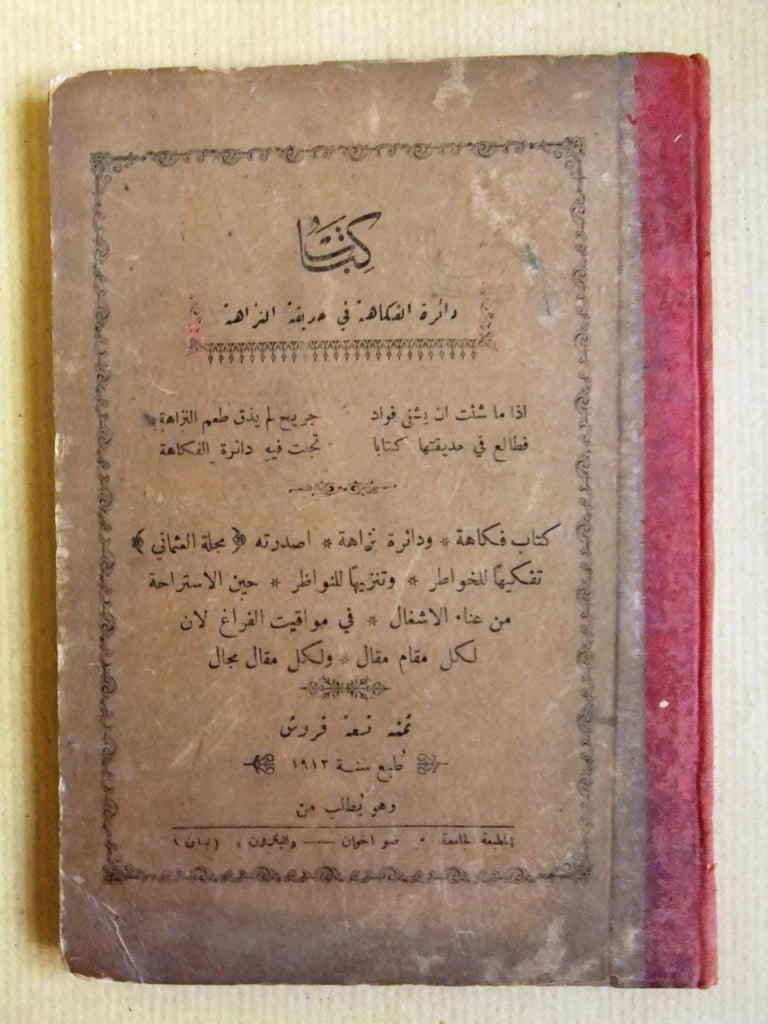 كتاب
دائرة الفكاهة في حديقة النزاهة
اذا ما شئت ان يشفى فواد جريح لم يذق طعم النزاهة
فطالع في حديقتها كتابا تجلت فيه دائرة الفكاهة
كتاب فكاهة * ودائرة نزاهة * اصدرته ﴿ مجلة العثماني ﴾
تفكيهًا للخواطر * وتنزيهًا للنواظر * حين الاستراحة
من عناء الاشغال * في مواقيت الفراغ لان
لكل مقام مقال * ولكل مقال مجال
ثمنه تسعة غروش
طُبع سنة ١٩١٢
وهو يُطلب من
المطبعة الجامعة * اخوان — والبترون * (لبنان)